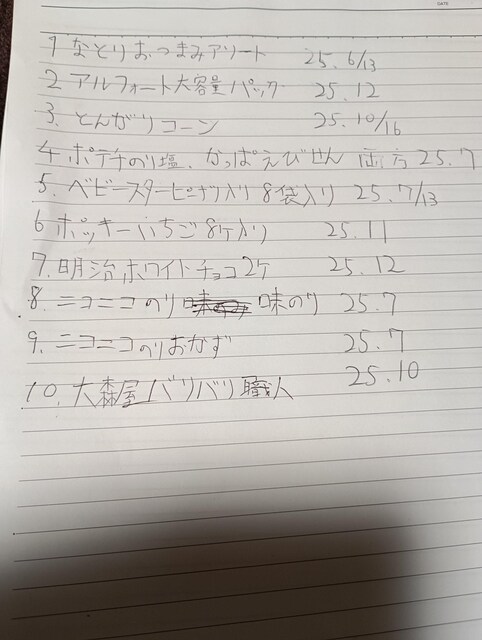 DATE
1 なとりおつまみアソート 25.6/13
2 アルフォート大容量パック 25.12
3. とんがりコーン 25.10/16
4 ポテチのり塩、かっぱえびせん 両方 25.7
5. ベビースターピーナツ入り 8袋入り 25.7/13
6 ポッキーいちご8ケ入り 25.11
7. 明治ホワイトチョコ2ケ 25.12
8. ニコニコのり 味のり 25.7
9. ニコニコのりおかず 25.7
10. 大森屋バリバリ職人 25.10